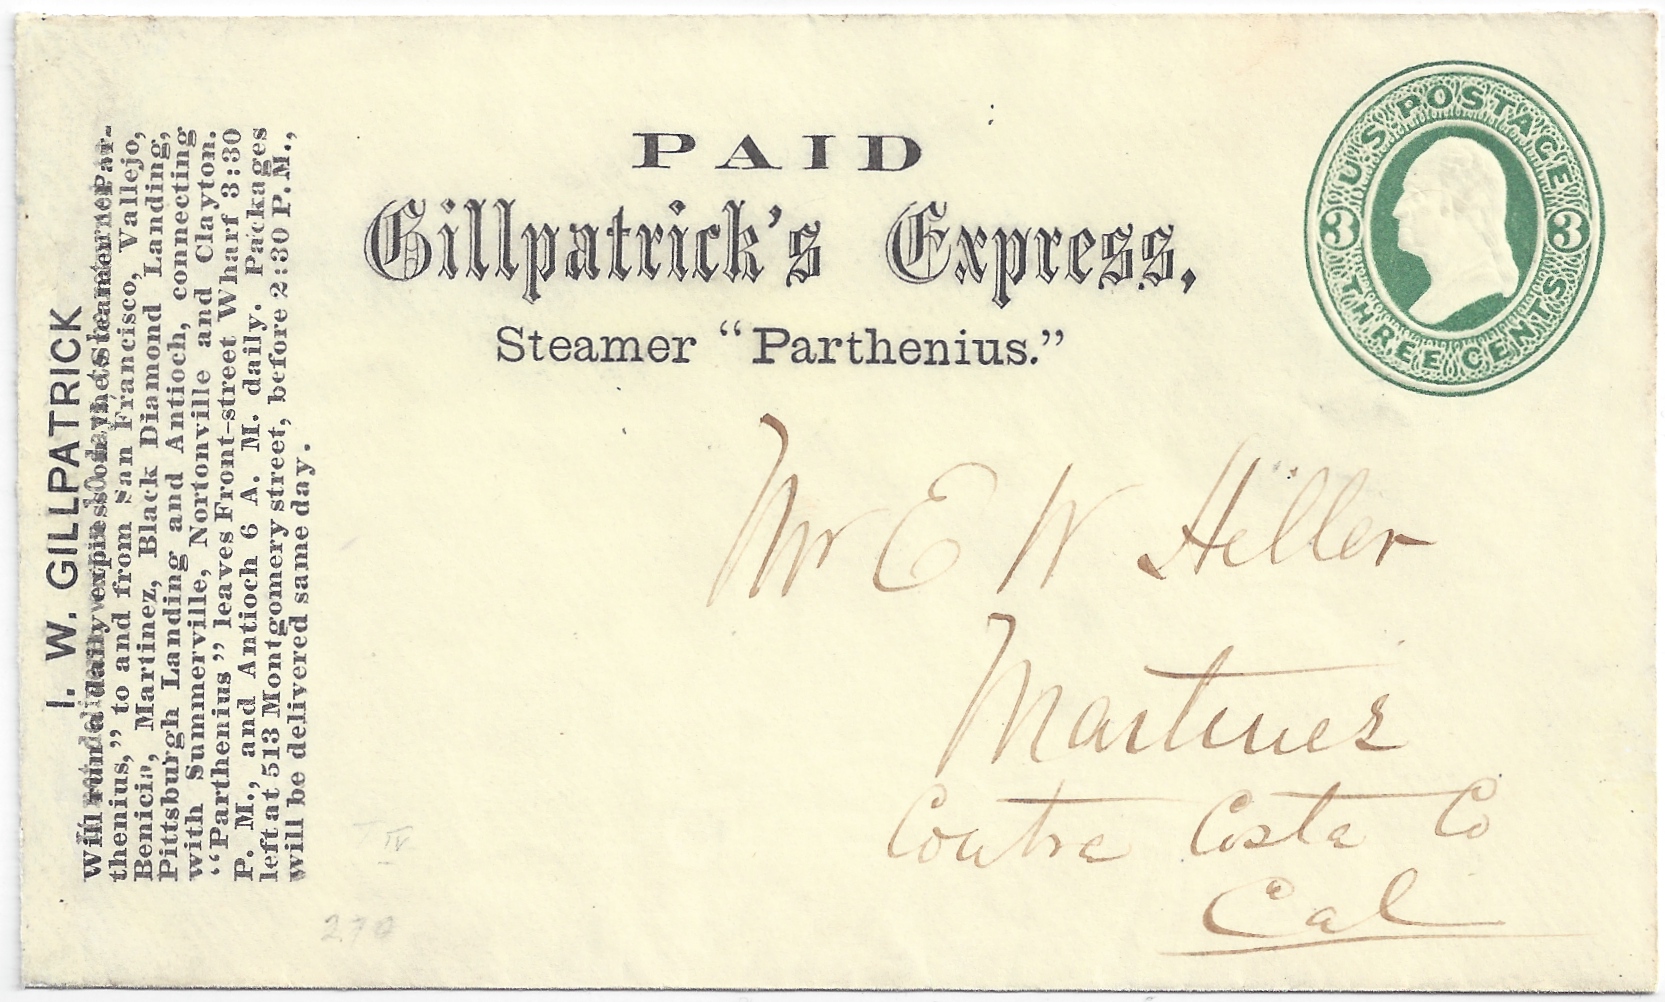 I. W. GILLPATRICK
Will run a daily express on the Steamer Par-
thenius," to and from San Francisco, Vallejo,
Benicia, Martinez, Black Diamond Landing,
Pittsburgh Landing and Antioch, connecting
with Summerville, Nortonville and Clayton.
"Parthenius" leaves Front-street Wharf 3:30
P. M., and Antioch 6 A. M. daily. Packages
left at 513 Montgomery street, before 2:30 P.M.,
will be delivered same day.
PAID
Gillpatrick's Express,
Steamer "Parthenius."
U.S. POSTAGE
3 3
THREE CENTS
Mr E W Hiller
Martinez
Contra Costa Co
Cal
T IV
270